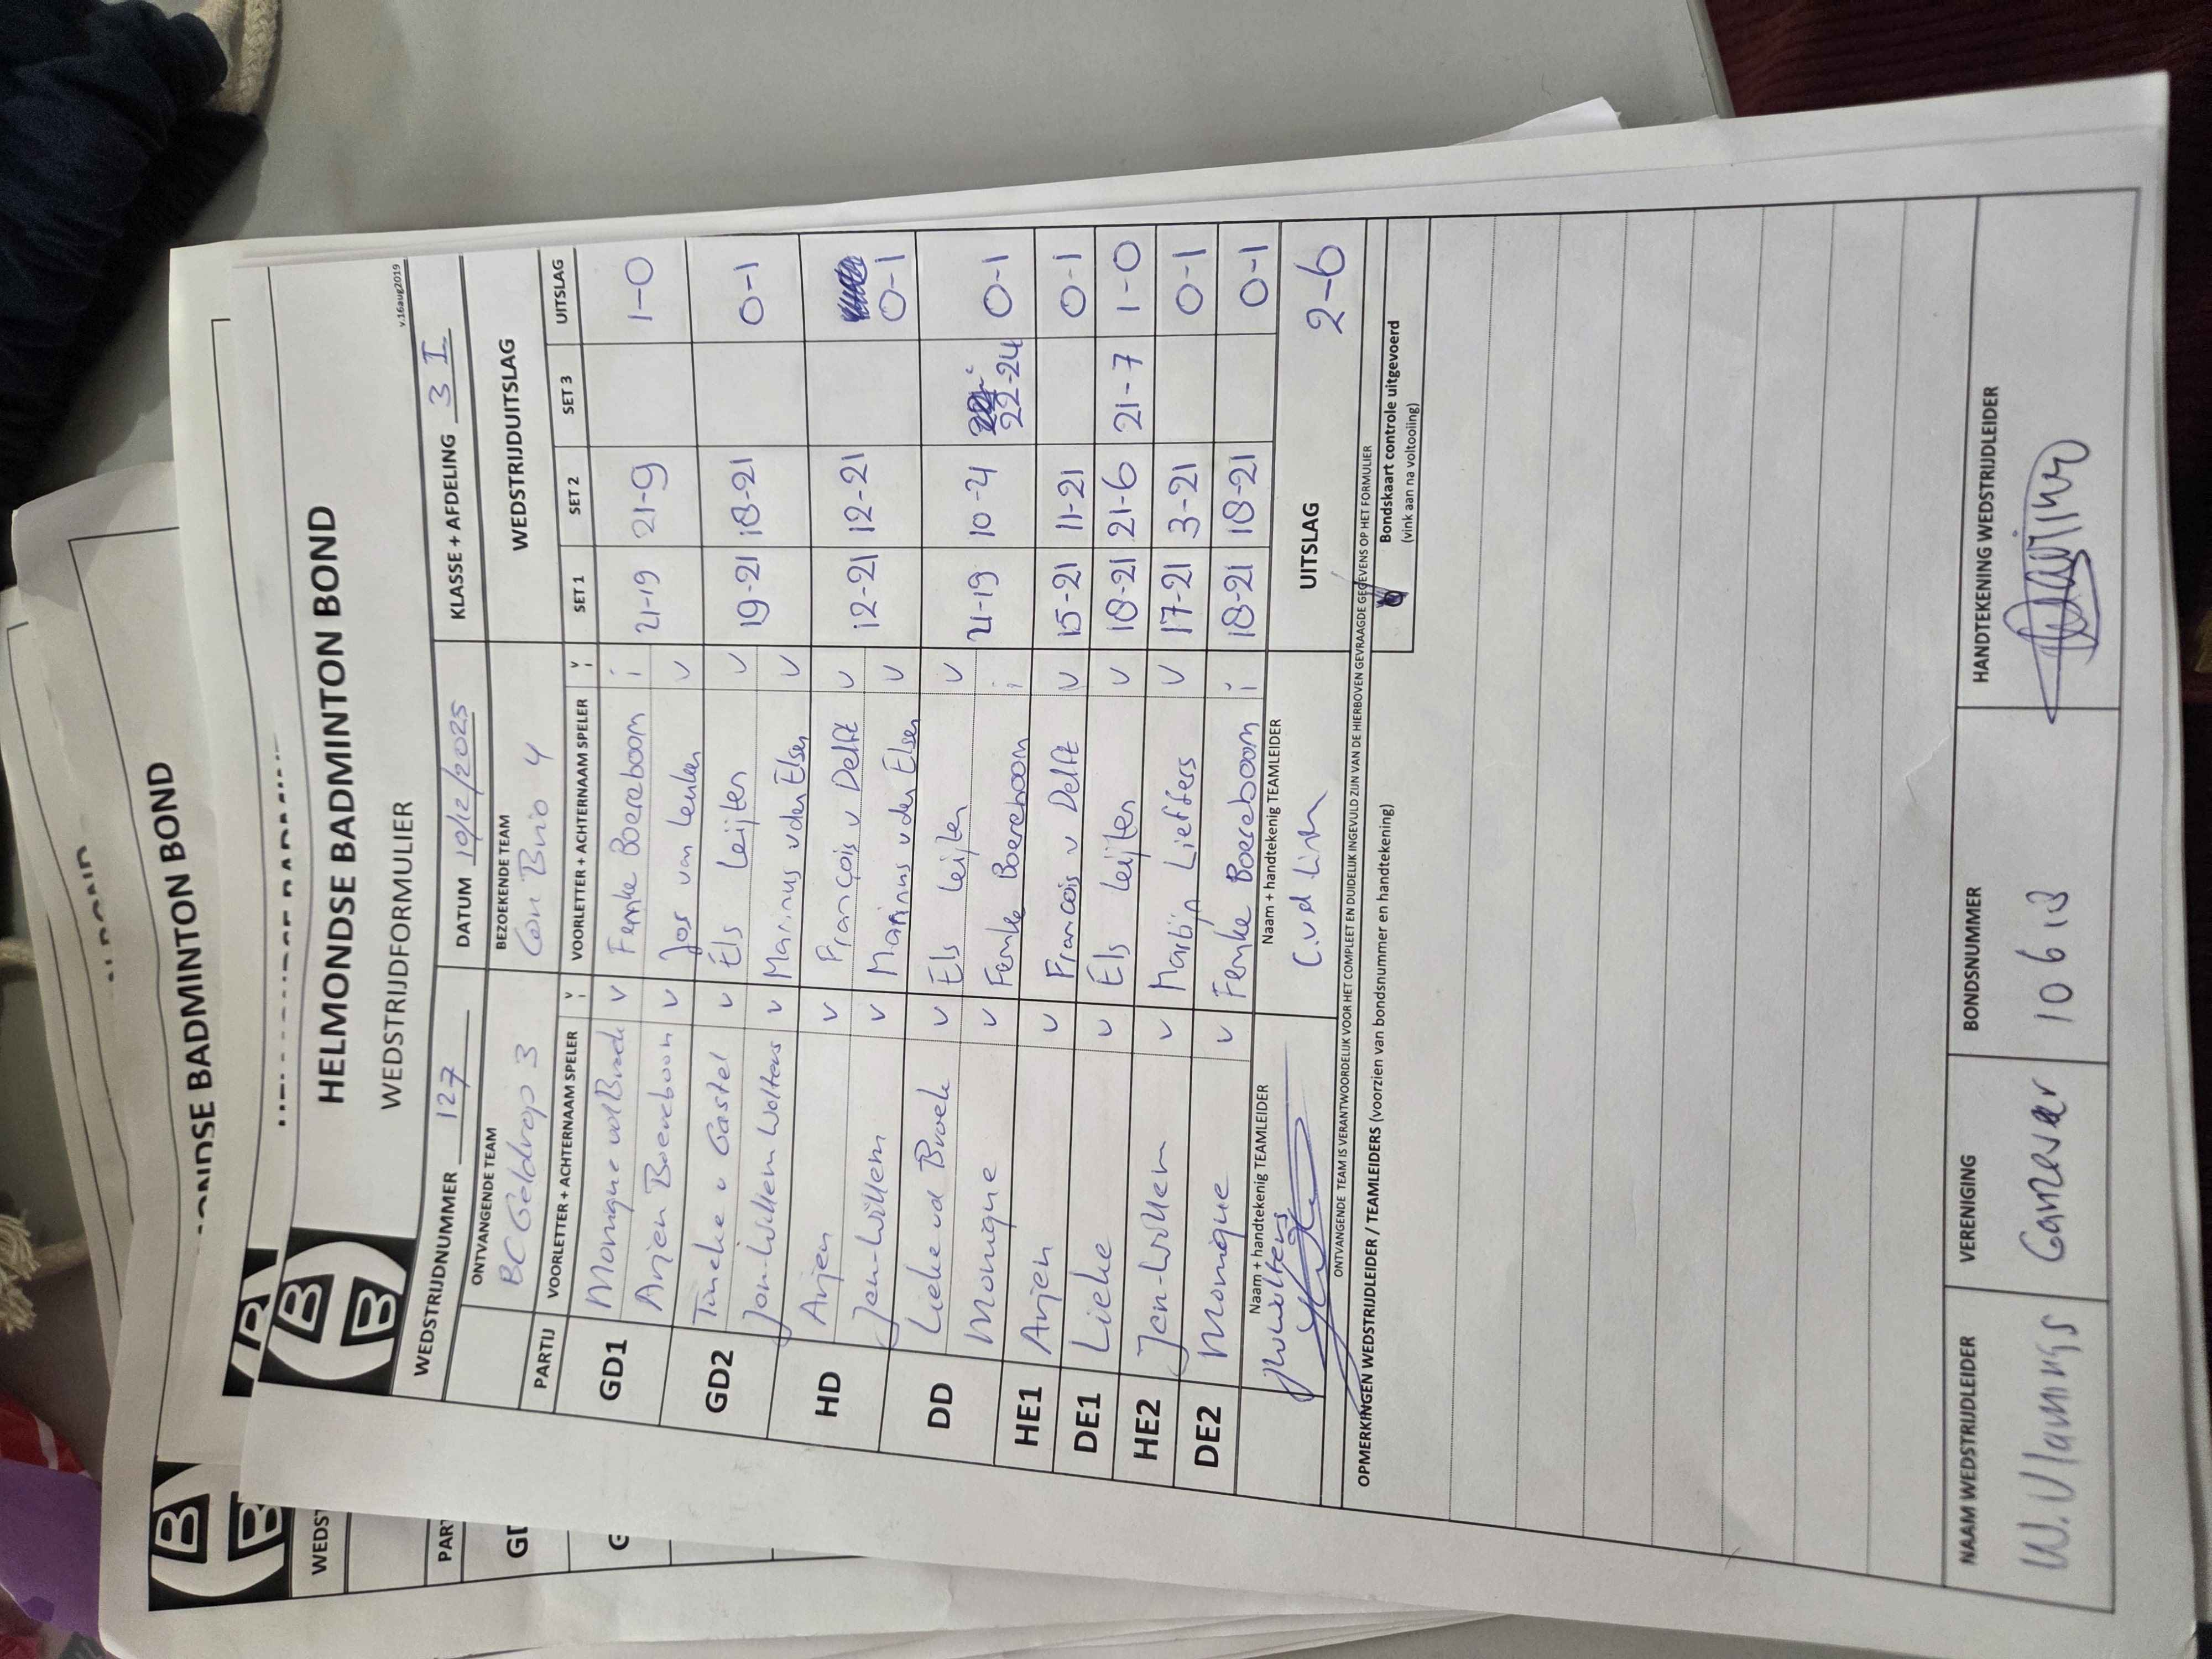 HELMONDSE BADMINTON BOND
WEDSTRIJDFORMULIER
v.16aug2019
WEDSTRIJDNUMMER 127 DATUM 10/12/2025 KLASSE + AFDELING 3 I
ONTVANGENDE TEAM BEZOEKENDE TEAM WEDSTRIJDUITSLAG
BC Geldrop 3 Con Brio 4
PARTIJ VOORLETTER + ACHTERNAAM SPELER V I VOORLETTER + ACHTERNAAM SPELER V I SET 1 SET 2 SET 3 UITSLAG
GD1 Monique vd Broek v Femke Boereboom i 21-19 21-9 1-0
Arjen Boereboom v Jos van v
GD2 Tineke v Gastel v Els Leijten v 19-21 18-21 0-1
Jan-Willem Wolters v Marinus v den Elsen v
HD Arjen v François v Delft v 12-21 12-21 0-1
Jan-Willem v Marinus v den Elsen v
DD Lieke vd Broek v Els Leijten v 21-19 10-21 22-24 0-1
Monique v Femke Boereboom i
HE1 Arjen v Francois v Delft v 15-21 11-21 0-1
DE1 Lieke v Els Leijten v 18-21 21-6 21-7 1-0
HE2 Jan-Willem v Martijn Lieffers v 17-21 3-21 0-1
DE2 Monique v Femke Boereboom i 18-21 18-21 0-1
Naam + handtekenig TEAMLEIDER Naam + handtekenig TEAMLEIDER UITSLAG 2-6
C.vd Linn
ONTVANGENDE TEAM IS VERANTWOORDELIJK VOOR HET COMPLEET EN DUIDELIJK INGEVULD ZIJN VAN DE HIERBOVEN GEVRAAGDE GEGEVENS OP HET FORMULIER
OPMERKINGEN WEDSTRIJDLEIDER / TEAMLEIDERS (voorzien van bondsnummer en handtekening)
Bondskaart controle uitgevoerd
(vink aan na voltooling)
NAAM WEDSTRIJDLEIDER VERENIGING BONDSNUMMER HANDTEKENING WEDSTRIJDLEIDER
W. Vlamings Ganzeveer 10618
HELMONDSE BADMINTON BOND